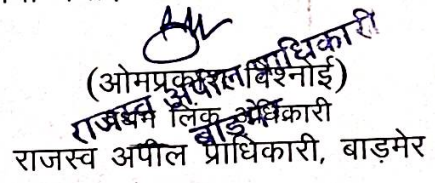 (ओमप्रकाश विश्नोई)
लिंक अधिकारी
राजस्व अपील प्राधिकारी, बाड़मेर
राजस्व अपील प्राधिकारी
बाड़मेर